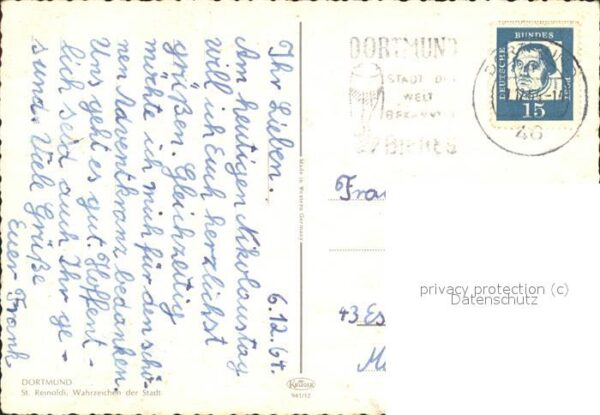 6.12.64.
Ihr Lieben.
Am heutigen Nikolaustag
will ich Euch herzlichst
grüßen. Gleichzeitig
möchte ich mich für den schö-
nen Adventkranz bedanken.
Uns geht es gut. Hoffent-
lich seid auch Ihr ge-
sund. Viele Grüße
Euer Frank
DORTMUND
St. Reinoldi, Wahrzeichen der Stadt
Made in Western Germany
KRÜGER
941/12
DORTMUND
STADT DES
WELT
BIERES
46
DEUTSCHE BUNDES POST
15
Fra
43 Es
privacy protection (c)
Datenschutz